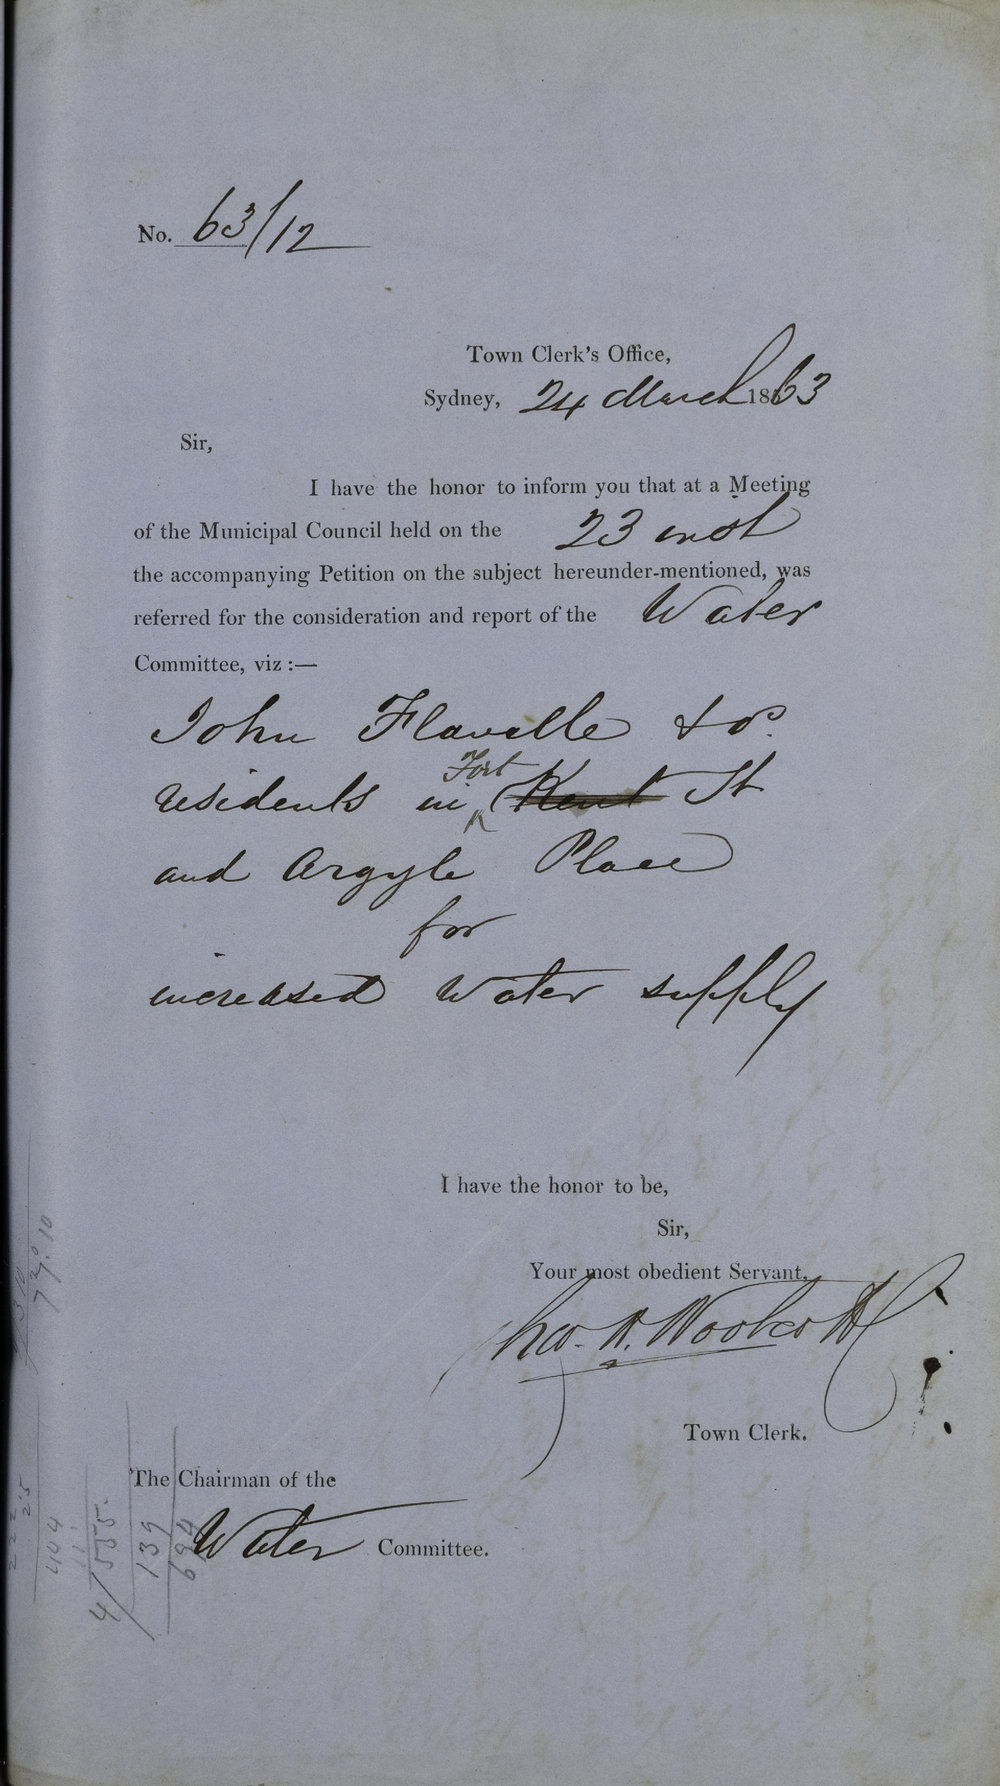 No. 63/12
Town Clerk's Office,
Sydney, 24 March 1863
Sir,
I have the honor to inform you that at a Meeting
of the Municipal Council held on the 23 inst
the accompanying Petition on the subject hereunder-mentioned, was
referred for the consideration and report of the Water
Committee, viz :—
John Flavelle & os.
Fort
residents in Kent St
and Argyle Place
for
increased Water supply
I have the honor to be,
Sir,
Your most obedient Servant,
Chas. H. Woolcott
Town Clerk.
The Chairman of the
Water Committee.
222
25
444
111
4/555.
139
694